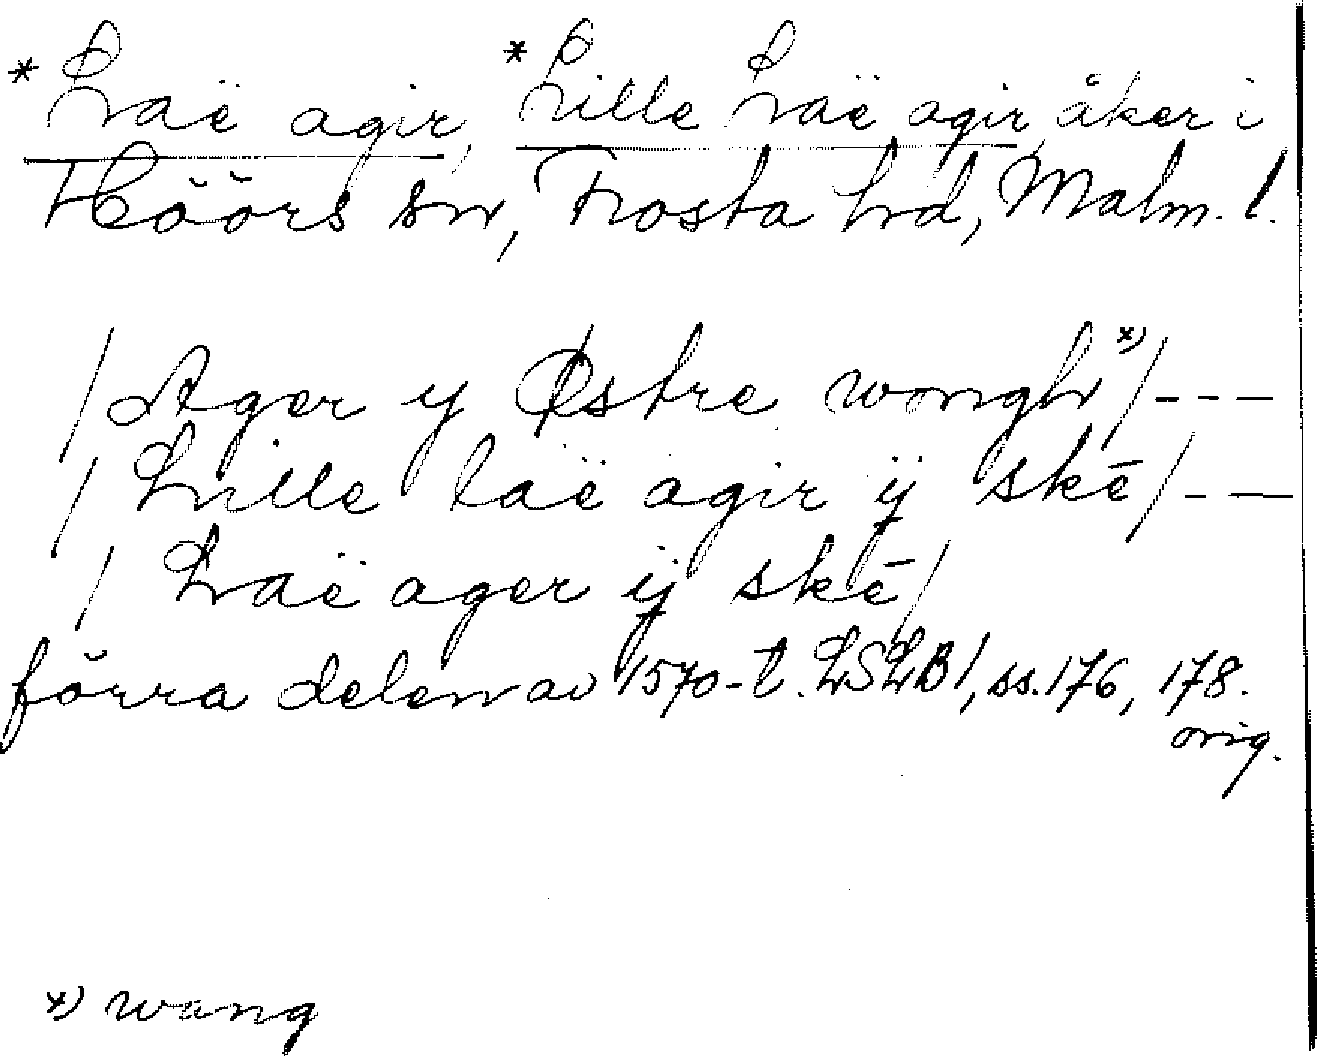 *Laë agir, *Lille Laë agir, åker i
Höörs sn, Frosta hd, Malm. l.
/ Ager y Østre wongh *) / - - -
/ Lille laë agir ÿ skē / - - -
/ Laë ager ÿ skē /
förra delen av 1570-t. LSLB 1, ss. 176, 178.
orig.
*) wang